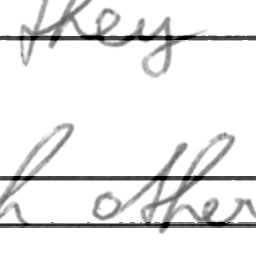 they
h other